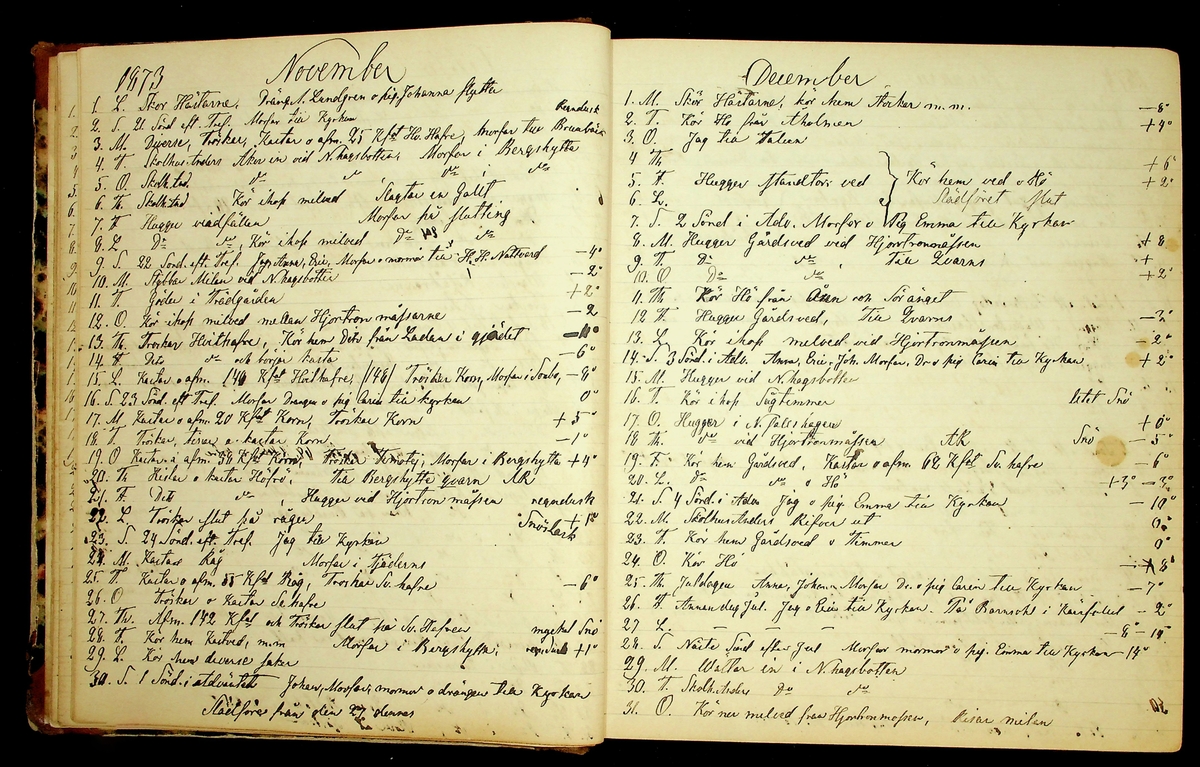 1873 November
1. L. Skor Hästarne, Dräng A. Lundgren o pig. Johanna flytta
2. S. 21 Sönd. eft. Tref. Morfar till Kyrkan
3. M. Diverse, Tröskar, Kastar o afm. 25 Kfat Hv. Hafre, Morfar till
4. T. Skolhus Anders Åker in vid N. hagsbotten, Morfar i Bergshytta
5. O. Skolhus do do do do
6. Th. Skolhus Kör ihop milved Slagtar en Galt
7. F. Hugger vindfällen Morfar på slutting
8. L. Do do, Kör ihop milved Do do
9. S. 22 Sönd. eft. Tref. Jag, Anna, Eric, Morfar o mormor till H. H. Nattvard — 4°
10. M. Stybbar Milan vid N. hagsbotten — 2°
11. T. Göder i Trädgården + 2°
12. O. Kör ihop milved mellan Hjortron måssarne — 2
13. Th. Tröskar Hvithafre, Kör hem Dito från Ladan i gjärdet — 11°
14. F. Dito do och börjar kasta — 6°
15. L. Kastar o afm. 146 Kfat Hvithafre, /146/ Tröskar Korn, Morfar i — 8°
16. S. 23 Sönd. eft. Tref. Morfar Drängen o pig Carin till Kyrkan 0°
17. M. Kastar o afm. 20 Kfat Korn, Tröskar Korn + 5°
18. T. Tröskar, o kastar Korn. — 1°
19. O. Kastar o afm. 34 Kfat Korn, Tröskar Timotej, Morfar i Bergshytta + 4°
20. Th. o kastar Hafre, till Bergshytte qvarn AK
21. F. Dito do, Hugger ved Hjortron måssen regndusk
22. L. Tröskar slut på rågen, + 1°
23. S. 24 Sönd. eft. Tref. Jag till Kyrkan Snöslask
24. M. Kastar Råg Morfar i
25. T. Kastar o afm. 55 Kfat Råg, Tröskar Sv. hafre — 6°
26. O. Tröskar o Kastar Sv. hafre
27. Th. Afm. 142 Kfat och Tröskar slut på Sv. Hafren mycket Snö
28. F. Kör hem Kastved, m.m Morfar i Bergshytta, + 1°
29. L. Kör hem diverse saker
30. S. 1 Sönd. i advänttet Johan, Morfar, mormor o drängen till Kyrkan
Slädföre från den 27 dennes
December
1. M. Skor Hästarne, kör hem m.m. — 8°
2. T. Kör Hö från Aholmen + 4°
3. O. Jag till
4. Th. + 6°
5. F. Hugger ved Kör hem ved o Hö + 2°
6. L. Slädföret slut
7. S. 2 Sönd i Adv. Morfar o Pig Emma till Kyrkan
8. M. Hugger Gårdsved vid Hjortronmåssen + 8
9. T. Do do, Till Qvarns +
10. O. Do do + 2°
11. Th. Kör Hö från Åsen och Söränget
12. F. Hugger Gårdsved, Till Qvarns — 3°
13. L. Kör ihop melved vid Hjortronmåssen — 2°
14. S. 3 Sönd. i Adv. Anna, Eric, Joh. Morfar, Dr. o pig Carin till Kyrkan + 2°
15. M. Hugger vid N. hagsbotten
16. T. Kör ihop Sågtimmer litet Snö
17. O. Hugger i N. + 0°
18. Th. do vid Hjortronmåssen AK Snö — 5°
19. F. Kör hem Gårdsved, Kastar o afm 62 Kfat Sv. hafre — 6°
20. L. Do do o Hö + 3° — 3°
21. S. 4 Sönd. i Adv. Jag o pig. Emma till Kyrkan — 10°
22. M. Skolhus Anders Rifver ut 0°
23. T. Kör hem Gårdsved o Timmer 0°
24. O. Kör Hö 8°
25. Th. Juldagen Anna, Johan, Morfar Dr. o pig Carin till Kyrkan — 7°
26. F. Annandag Jul. Jag o Eric till Kyrkan. På Barnsöl i — 2°
27. L. — — — — 8° — 15°
28. S. Nästa Sönd efter Jul Morfar mormor o pig. Emma till Kyrkan — 15°
29. M. in i N. hagsbotten
30. T. Skolh. Anders do do
31. O. Kör ner melved från Hjortronmåssen, Resar milan